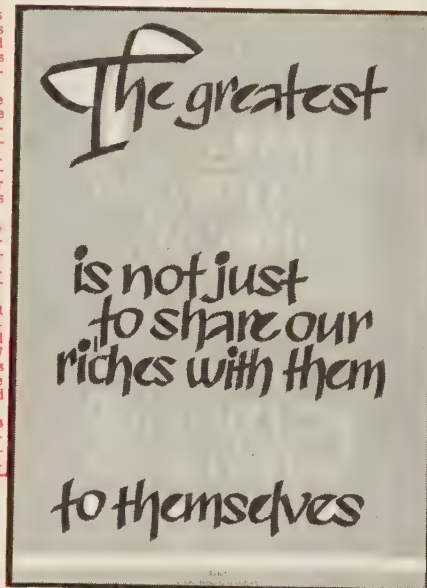 The greatest
is not just
to share our
riches with them
to themselves